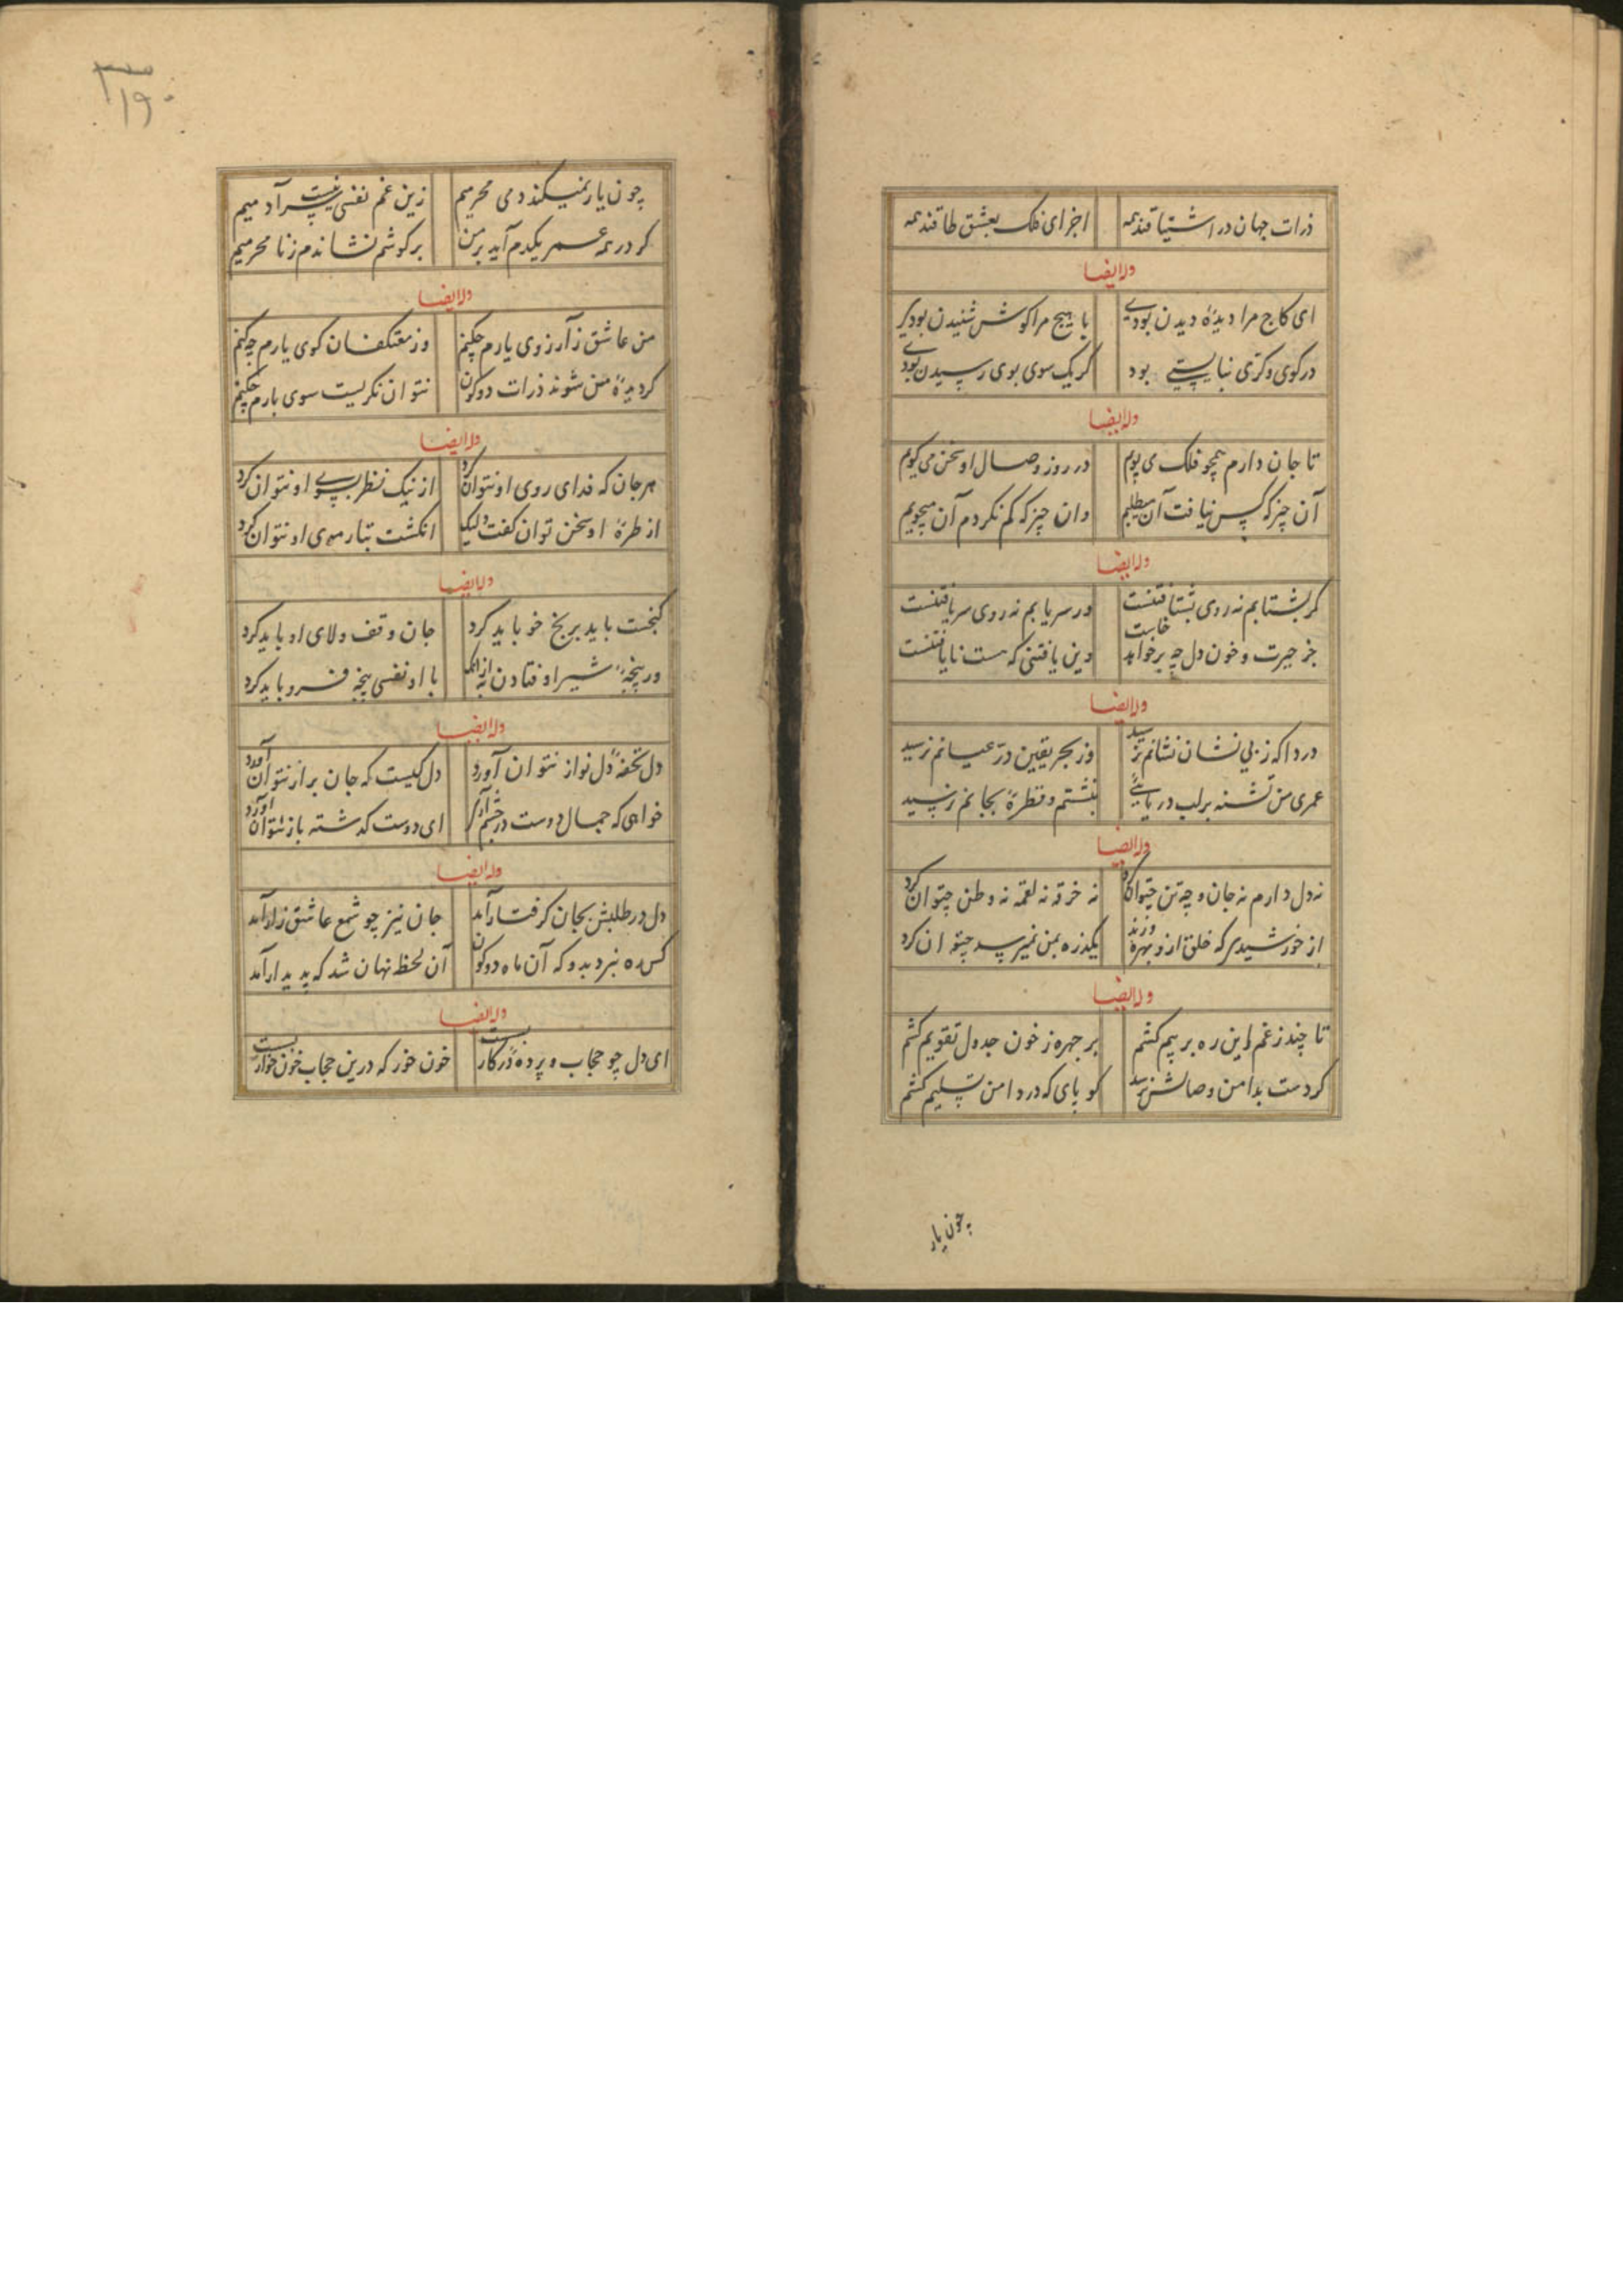 ذرات جهان در اشتیاقند همه اجزای فلک بعشق طاقند همه
وله ایضا
ای کاج مرا دیدهٔ دیدن بودی یا هیچ مرا کوش شنیدن بودی
در کوی وکری نبایستی بود کر یک سوی بوی رسیدن بودی
وله ایضا
تا جان دارم همچو فلک می پویم در روز وصال او سخن می کویم
آن چیز که کس نیافت آن میطلبم وان چیز که کم نکردم آن میجویم
وله ایضا
کر بشتابم نه روی بشتافتنست ور سر یابم نه روی سر یافتنست
جز حیرت و خون دل چه برخواهد خاست وین یافتنی که هست نایافتنست
وله ایضا
دردا که ز بی نشان نشانم نرسید وز بحر یقین در عیانم نرسید
عمری من تشنه بر لب دریایی بنشستم و قطرهٔ بجانم نرسید
وله ایضا
نه دل دارم نه جان و چه تن چتوان کرد نه خرقه نه لقمه نه وطن چتوان کرد
از خورشیدی که خلق ازو بهره ورند یکذره بمن نمیرسد چتوان کرد
وله ایضا
تا چند ز غم این ره بر بیم کشم بر چهره ز خون جدول تقویم کشم
کر دست بدامن وصالش نرسد کو پای که در دامن تسلیم کشم
چون یار
۱۹۰
چون یار نمیکند دمی محرمیم زین غم نفسی نیست سر آدمیم
کر در همه عمر یکدم آید بر من بر کوشم نشاندم ز نا محرمیم
وله ایضا
من عاشق زار آرزوی یارم چکنم وز معتکفان کوی یارم چه کنم
کر دیدهٔ من شوند ذرات دو کون نتوان نکریست سوی یارم چکنم
وله ایضا
هر جان که فدای روی او نتوان کرد از نیک نظر بسوی او نتوان کرد
از طرهٔ او سخن توان کفت ولیک انکشت بتار موی او نتوان کرد
وله ایضا
کنجت باید برنج خو باید کرد جان وقف ولای او باید کرد
در پنجهٔ شیر اوفتادن به ازانک با او نفسی پنجه فرو باید کرد
وله ایضا
دل تحفهٔ دل نواز نتوان آورد دل کیست که جان براز نتوان آورد
خواهی که جمال دوست در چشم آری ای دوست کذشته باز نتوان آورد
وله ایضا
دل در طلبش بجان کرفتار آمد جان نیز چو شمع عاشق زار آمد
کس ره نبرد بدو که آن ماه دو کون آن لحظ نهان شد که پدیدار آمد
وله ایضا
ای دل چو حجاب و پرده در کار بست خون خور که درین حجاب خون خوار بست